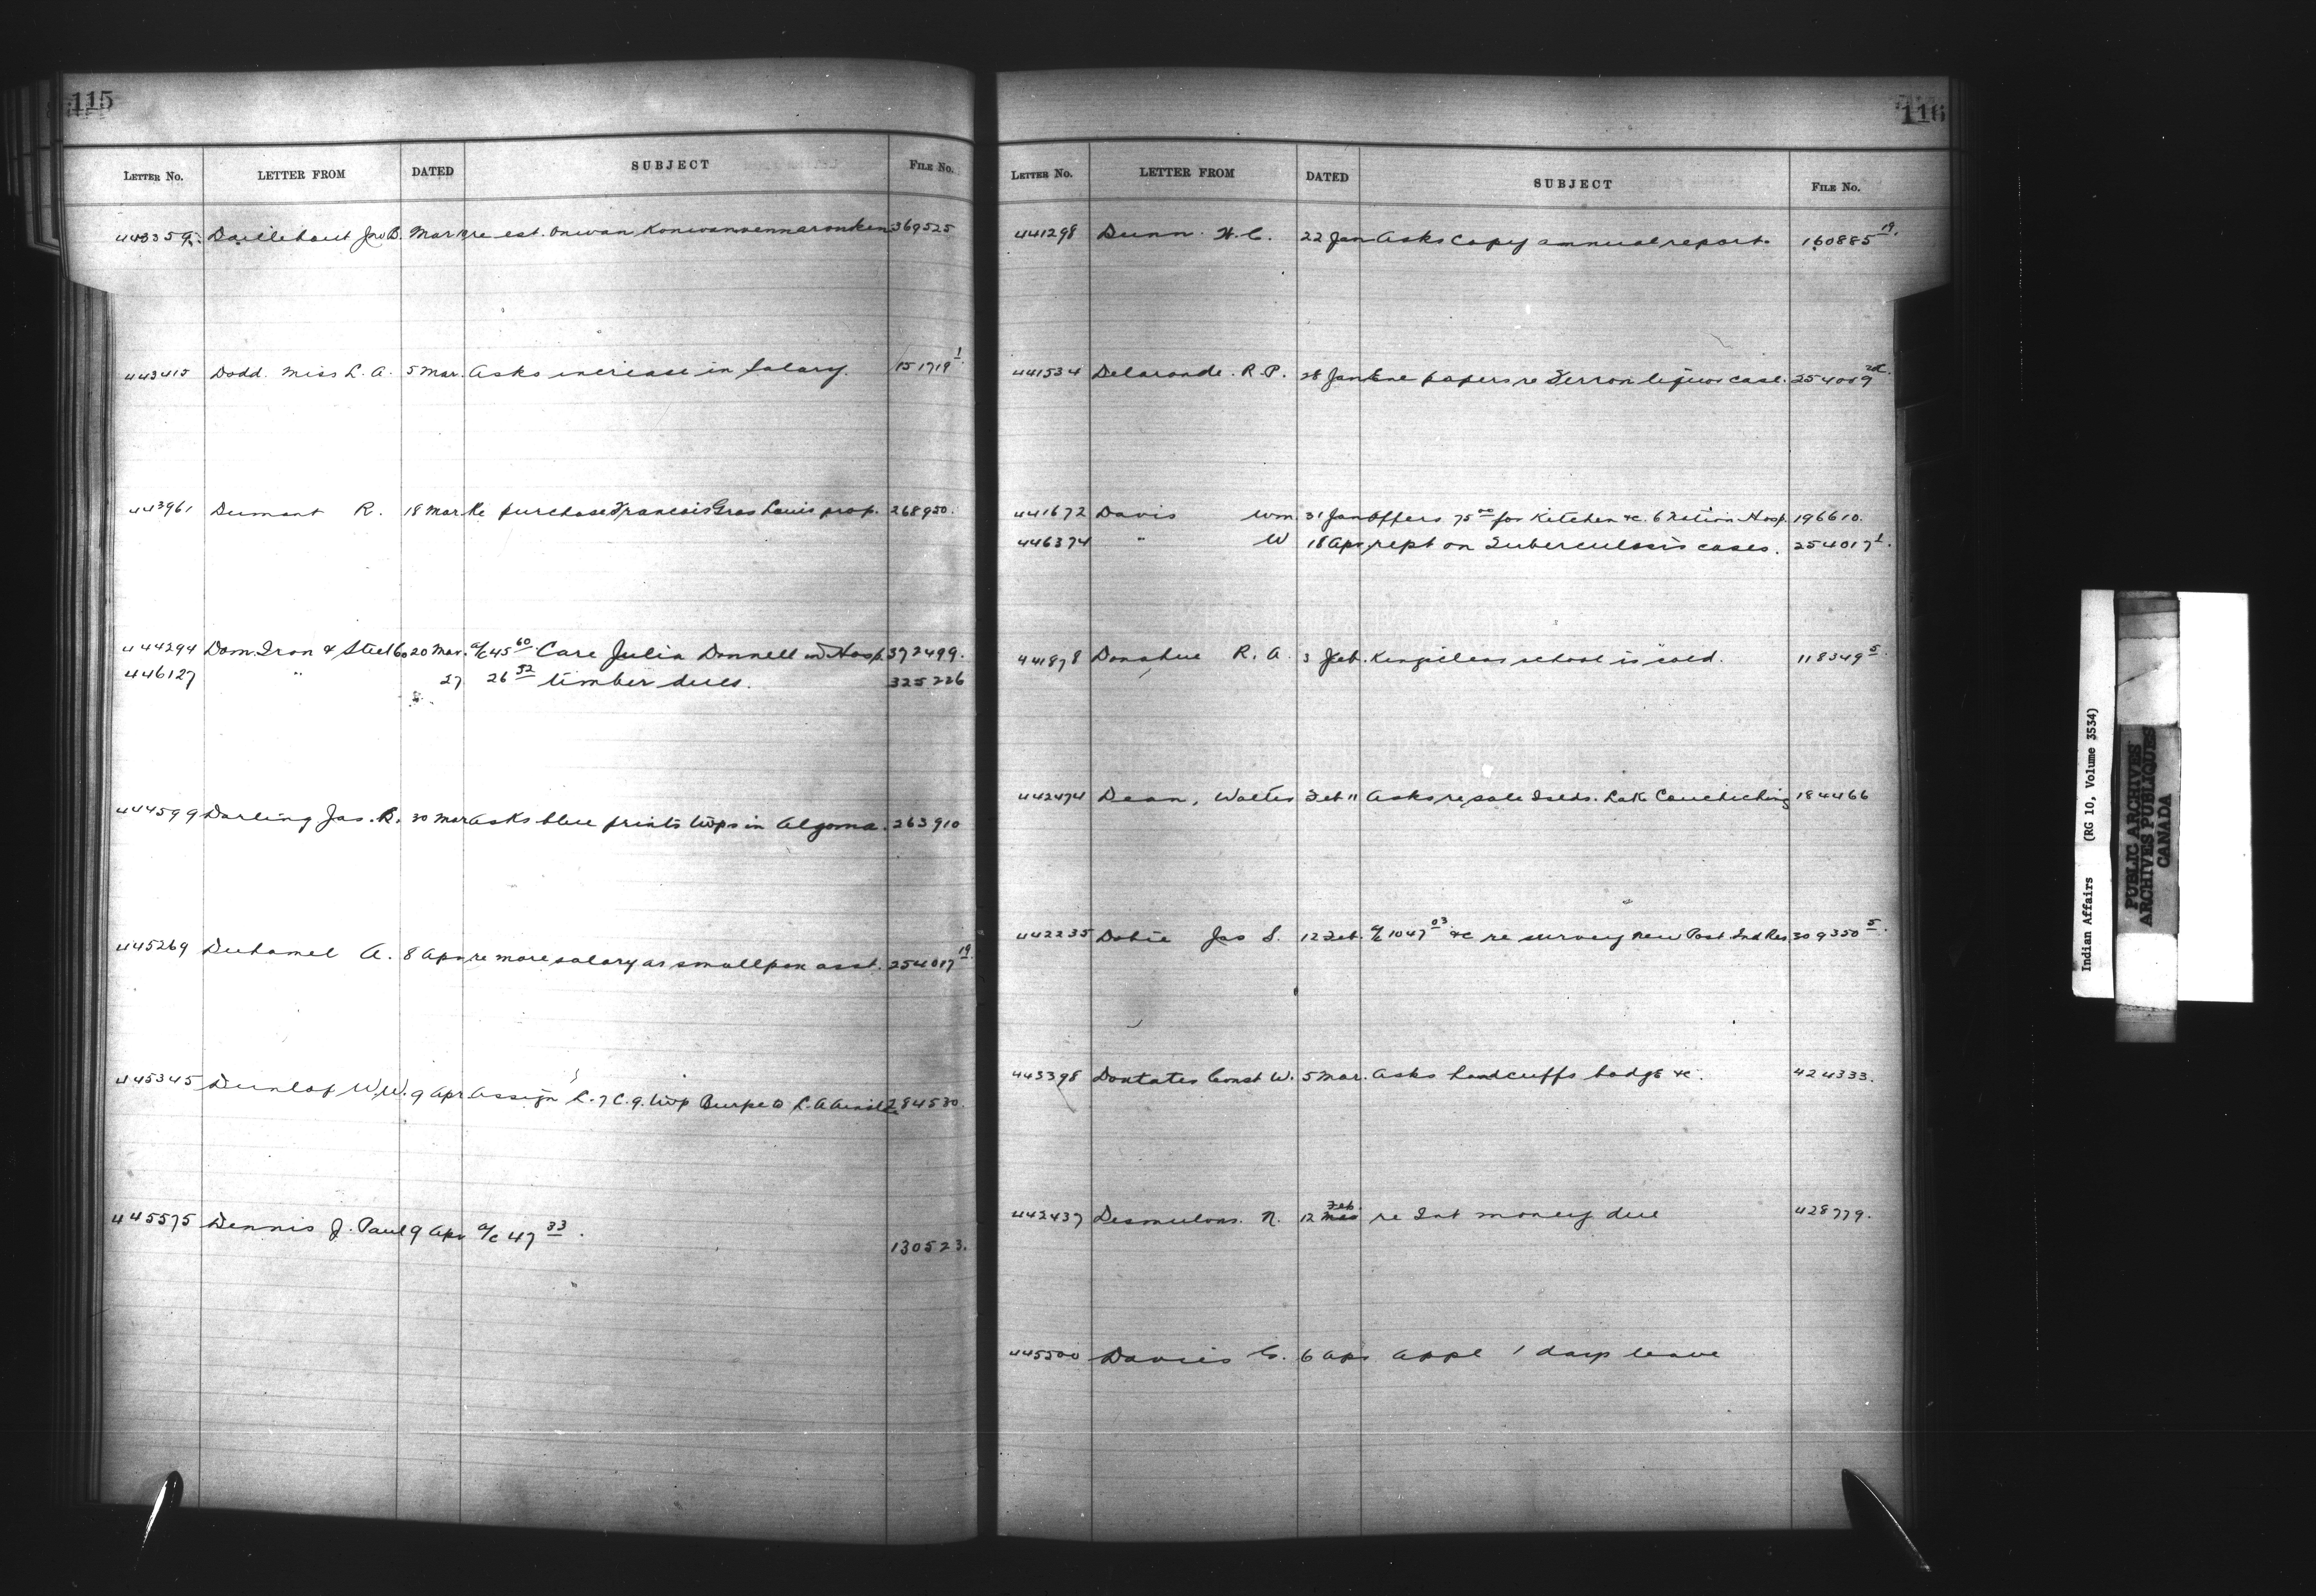 115
LETTER NO. LETTER FROM DATED SUBJECT FILE NO.
443359 Daillebout Jno B. Mar re est. 369525
443415 Dodd. Miss L. A. 5 Mar. Asks increase in salary. 151719 1
443961 Dumont R. 18 Mar Re purchase Francois Gros Louis prop. 268950.
444294 Dom. Iron & Steel Co 20 Mar. a/c 45 60 Care Julia Donnell in Hosp. 372499.
446127 " 27 26 32 timber dues. 325226
444599 Darling Jas. R. 30 Mar Asks blue prints twps in Algoma. 263910
445269 Duhamel A. 8 Apr re more salary as smallpox asst. 254017 19
445345 Dunlop W.W. 9 Apr Assign L. 7 C. 9. twp Burpee 284530.
445575 Dennis J. Paul 9 Apr a/c 47 33.
130523.
116
LETTER NO. LETTER FROM DATED SUBJECT FILE NO.
441298 Dunn. H. C. 22 Jan Asks copy annual report. 160885 19.
441534 Delaronde. R. P. 28 Jan Enc papers re liquor case. 254009
441672 Davis Wm. 31 Jan Offers 75 00 for Kitchen &c. 6 Nation Hosp. 196610.
446374 " W 18 Apr rept on Tuberculosis cases. 254017 1.
441878 Donahue R. A. 3 Feb. school is sold. 118349 5.
442474 Dean, Walter Feb 11 Asks re sale Islds. Lake Couchiching 184466
442235 Dobie Jas S. 12 Feb. a/c 1047 03 &c re survey New Post Ind Res 309350 5.
443398 Doxtater Const W. 5 Mar. Asks handcuffs badge &c. 424333.
Feb.
442437 Desmulons. N. 12 Mar re Int money due 428779.
445500 Davies C. 6 Apr appl 1 days leave
Indian Affairs (RG 10, Volume 3534)
PUBLIC ARCHIVES
ARCHIVES PUBLIQUES
CANADA